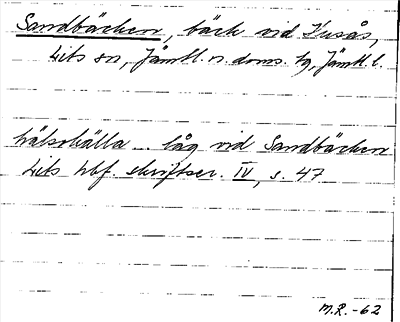 Sandbäcken, bäck vid Kusås,
Lits sn, Jämtl. n. doms. tg, Jämtl. l.
hälsokälla .. låg vid Sandbäcken
Lits hbf. skriftser. IV, s. 47
M.R. -62